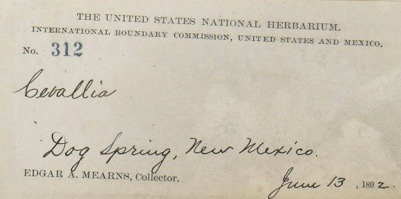 THE UNITED STATES NATIONAL HERBARIUM.
INTERNATIONAL BOUNDARY COMMISSION, UNITED STATES AND MEXICO.
No. 312
Cevallia
Dog Spring, New Mexico.
EDGAR A. MEARNS, Collector.
June 13, 1892.